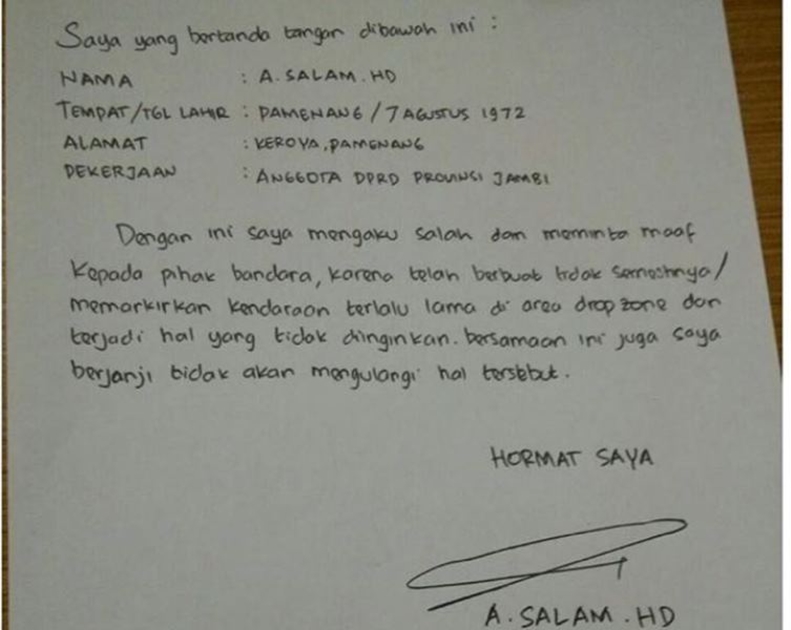 Saya yang bertanda tangan dibawah ini :
NAMA : A. SALAM . HD
TEMPAT/TGL LAHIR : PAMENANG / 7 AGUSTUS 1972
ALAMAT : KEROYA, PAMENANG
PEKERJAAN : ANGGOTA DPRD PROVINSI JAMBI
Dengan ini saya mengaku salah dan meminta maaf
kepada pihak bandara, karena telah berbuat tidak semestinya/
memarkirkan kendaraan terlalu lama di area dropzone dan
terjadi hal yang tidak diinginkan. bersamaan ini juga saya
berjanji tidak akan mengulangi hal tersebut.
HORMAT SAYA
A. SALAM . HD